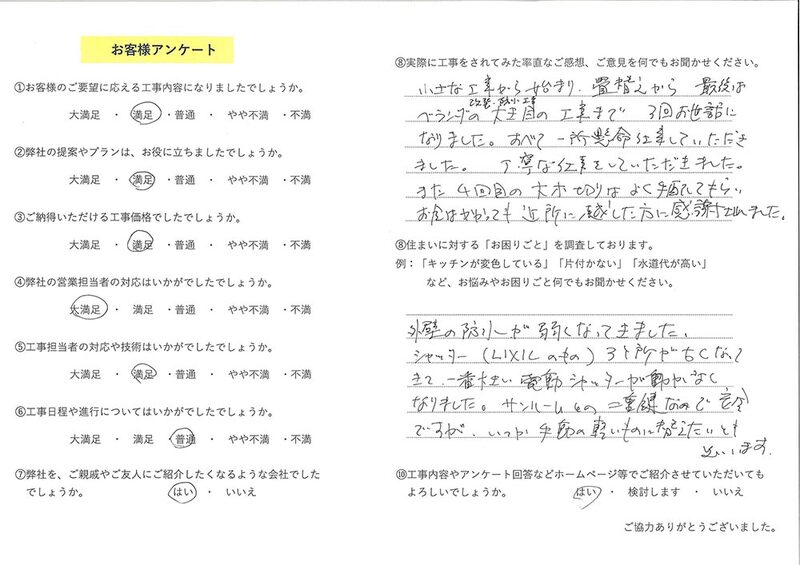 お客様アンケート
①お客様のご要望に応える工事内容になりましたでしょうか。
大満足 ・ 満足 ・普通 ・ やや不満 ・不満
②弊社の提案やプランは、お役に立ちましたでしょうか。
大満足 ・ 満足 ・普通 ・ やや不満 ・不満
③ご納得いただける工事価格でしたでしょうか。
大満足 ・ 満足 ・普通 ・ やや不満 ・不満
④弊社の営業担当者の対応はいかがでしたでしょうか。
大満足 ・ 満足 ・普通 ・ やや不満 ・不満
⑤工事担当者の対応や技術はいかがでしたでしょうか。
大満足 ・ 満足 ・普通 ・ やや不満 ・不満
⑥工事日程や進行についてはいかがでしたでしょうか。
大満足 ・ 満足 ・普通 ・ やや不満 ・不満
⑦弊社を、ご親戚やご友人にご紹介したくなるような会社でした
でしょうか。 はい ・ いいえ
⑧実際に工事をされてみた率直なご感想、ご意見を何でもお聞かせください。
小さな工事から始まり、畳替えから 最後は
ベランダの 工事まで 3回お世話に
なりました。すべて一所懸命仕事していただき
ました。 丁寧な仕事をしていただきました。
また4回目の大木切りは よく手配してもらい
お金はかかっても 近所に 方に感謝されました。
⑧住まいに対する「お困りごと」を調査しております。
例：「キッチンが変色している」「片付かない」「水道代が高い」
など、お悩みやお困りごと何でもお聞かせください。
外壁の防水が弱くなってきました。
シャッター（LIXILのもの）3ヶ所が古くなって
きて、一番大きい電動シャッターが動かなく
なりました。サンルームもの二重線なので安全
ですが、いつか手動の軽いものに替えたいとも
思います。
⑩工事内容やアンケート回答などホームページ等でご紹介させていただいても
よろしいでしょうか。 はい ・ 検討します ・ いいえ
ご協力ありがとうございました。